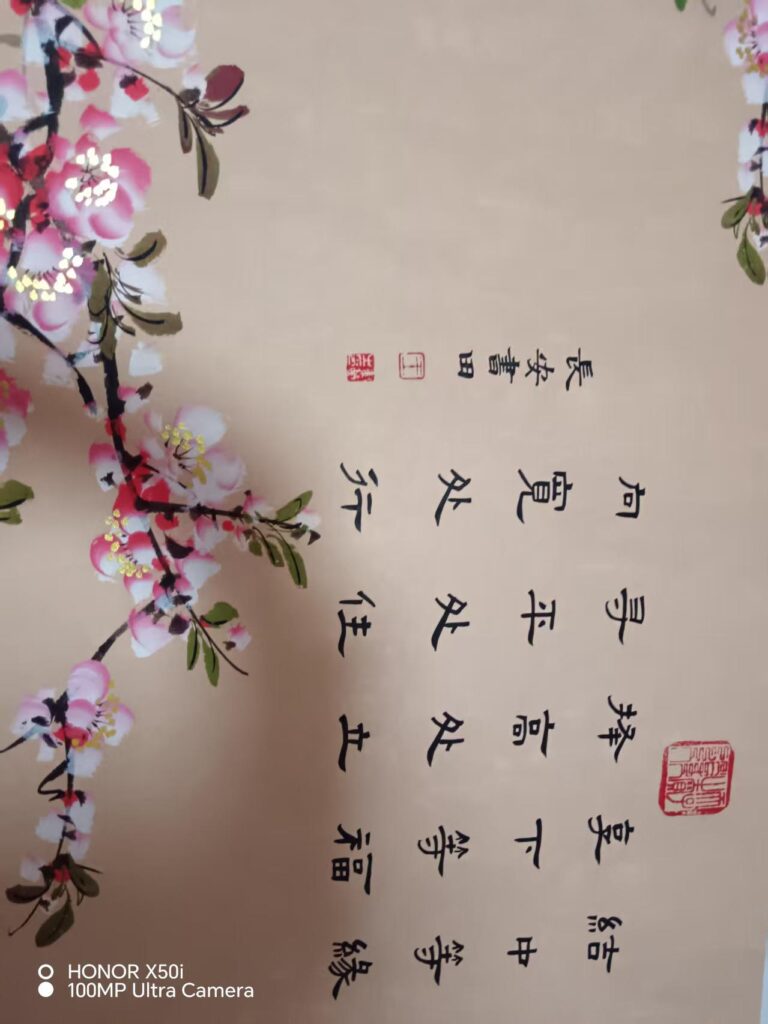 結中等緣
享下等福
擇高处立
尋平处住
向寬处行
長安書田
HONOR X50i
100MP Ultra Camera